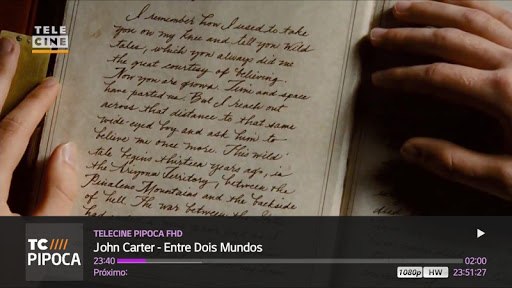 TELE
CINE
I remember how I used to take
you on my knee and tell you wild
tales, which you always did me
the great courtesy of believing.
Now you are grown. Time and space
have parted us. But I reach out
across that distance to that same
wide-eyed boy and ask him to
believe me once more. This wild
tale begins thirteen years ago, in
the Arizona Territory, between the
Pinaleno Mountains and the backside
of hell. The war between the
had
TC////
PIPOCA
TELECINE PIPOCA FHD
John Carter - Entre Dois Mundos
23:40
02:00
Próximo:
1080p
HW
23:51:27